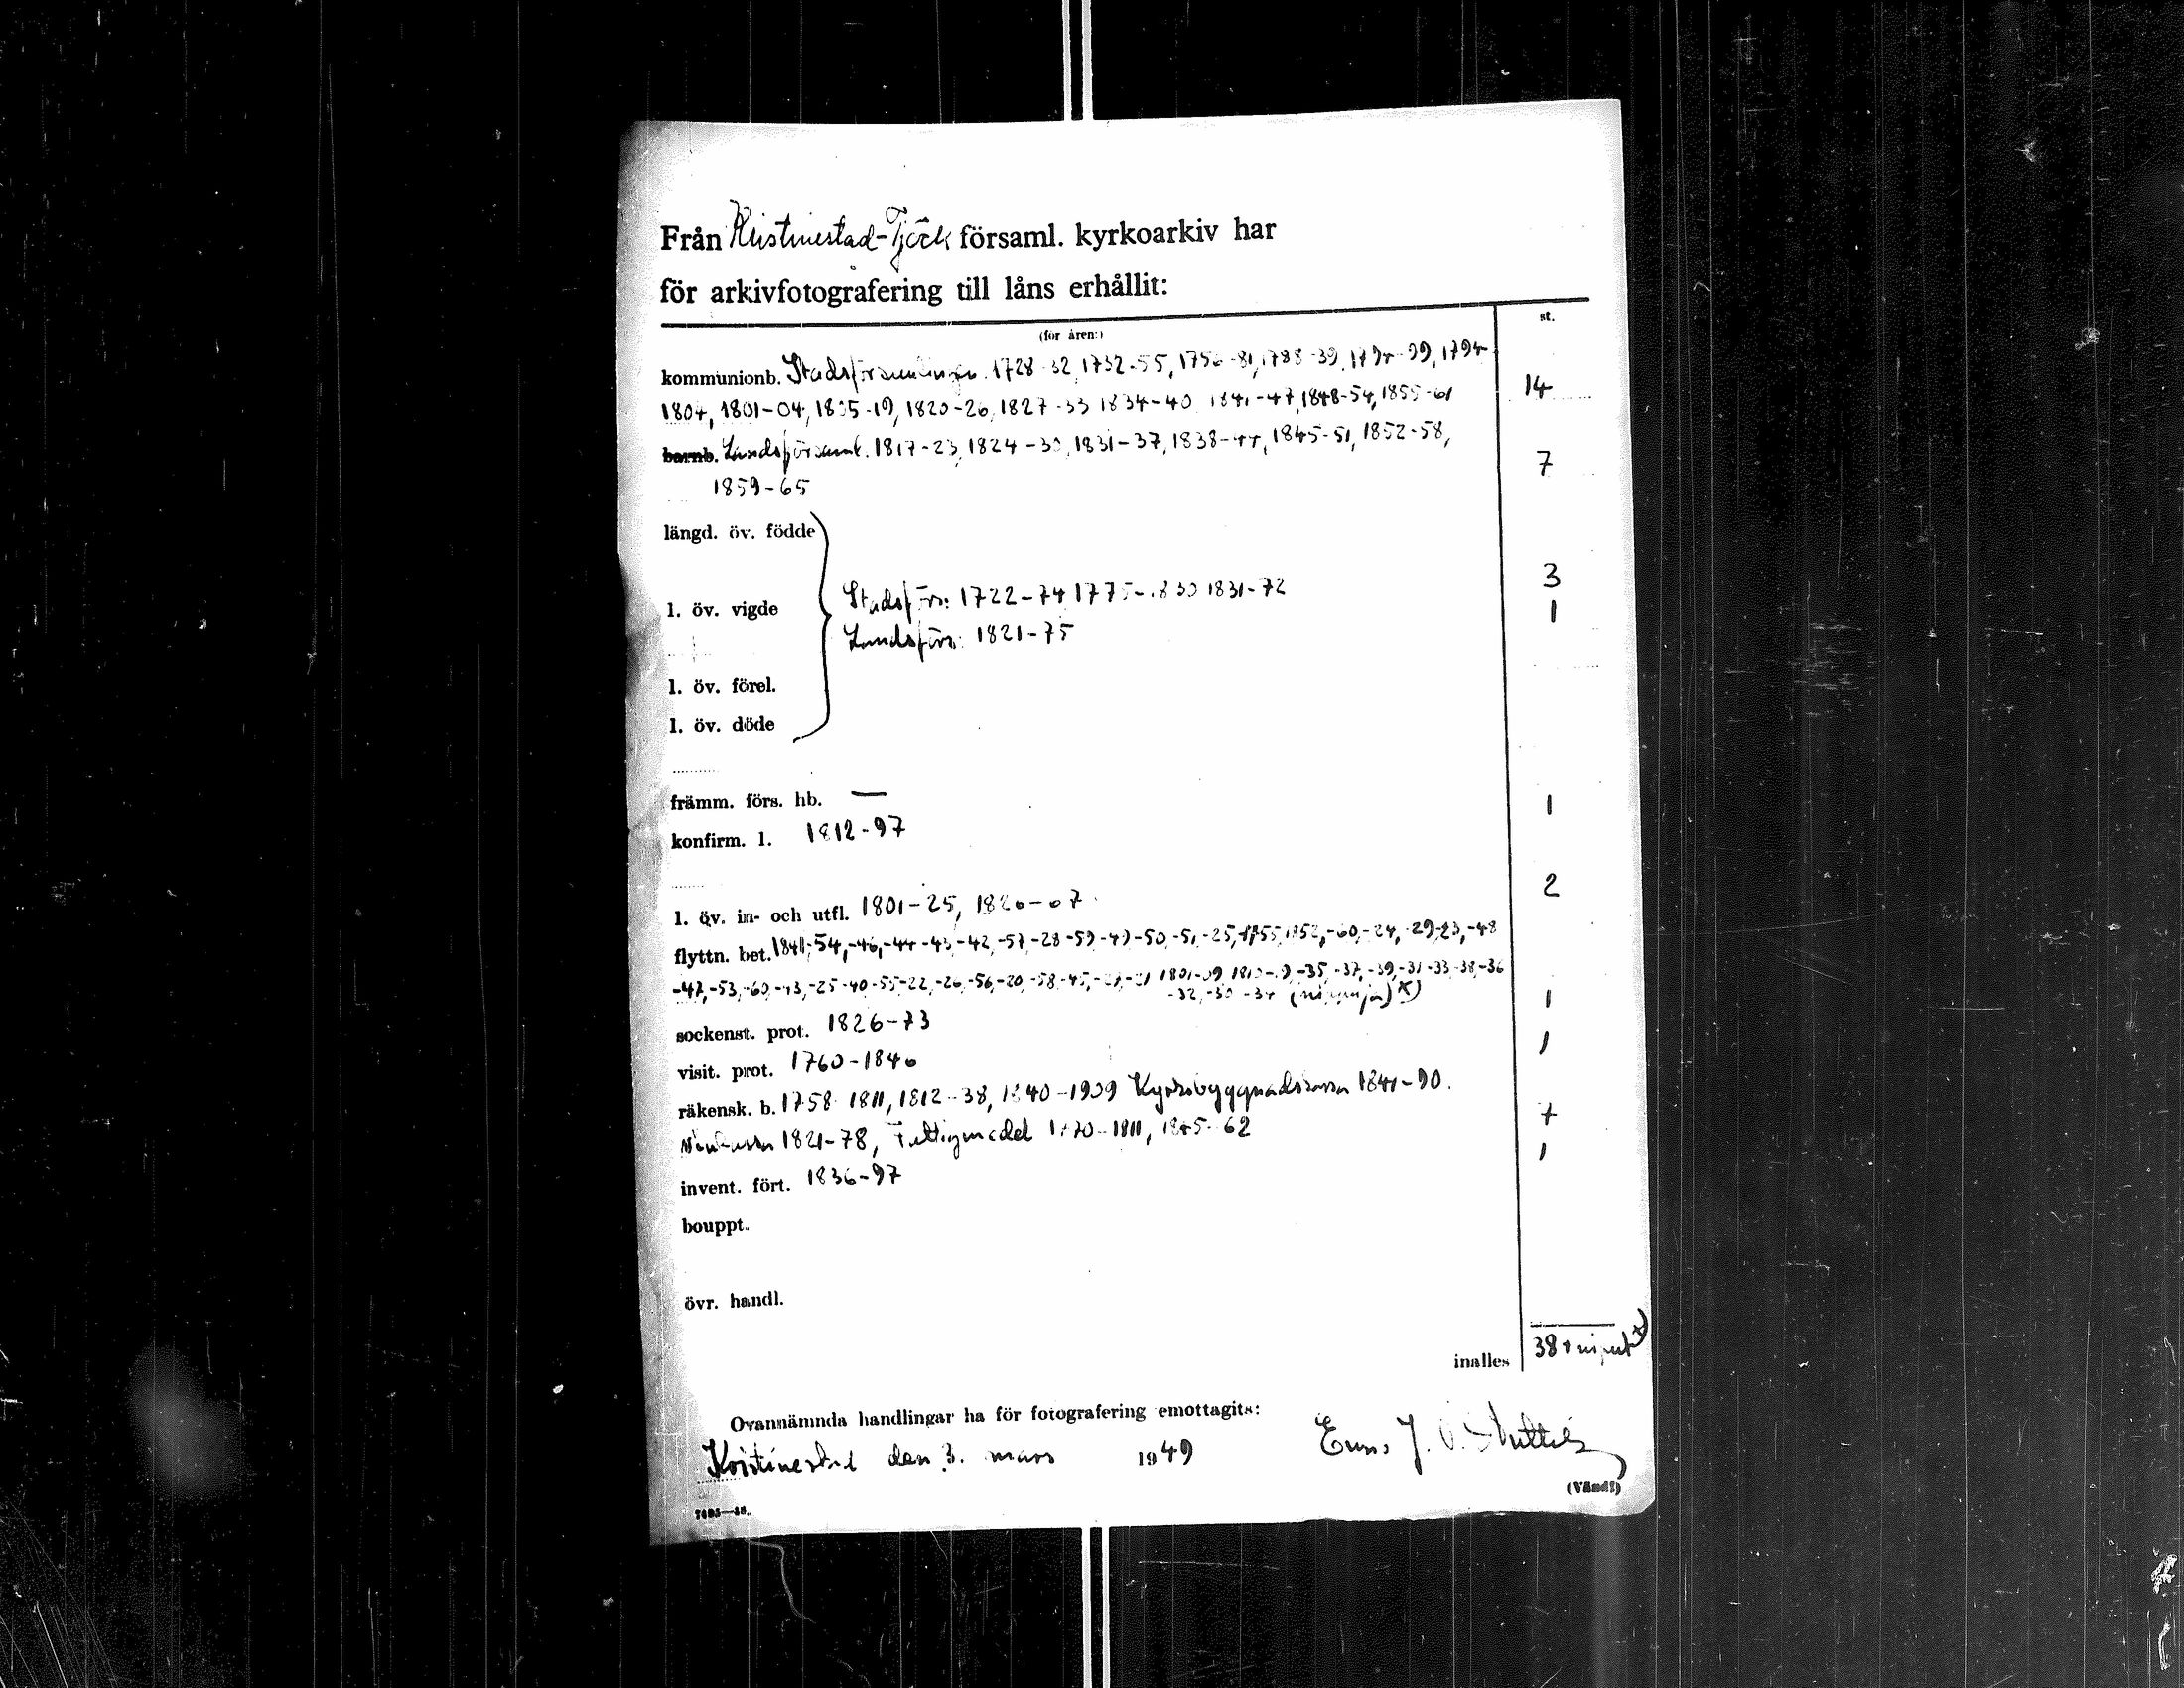 Från Kristinestad-Tjöck församl. kyrkoarkiv har
för arkivfotografering till låns erhållit:
(för åren:) st.
kommunionb. Stadsförsamlingen. 1728-32, 1732-55, 1756-81, 1788-39, 1794-99, 1794-
1804, 1801-04, 1805-19, 1820-26, 1827-33 1834-40 1841-47, 1848-54, 1855-61 14
barnb. Landsförsaml. 1817-23, 1824-30, 1831-37, 1838-44, 1845-51, 1852-58, 7
1859-65
längd. öv. födde
l. öv. vigde Stadsförs: 1722-74 1775-1830 1831-72 3
Landsförs: 1821-75 1
l. öv. förel.
l. öv. döde
främm. förs. hb. — 1
konfirm. l. 1812-97
l. öv. in- och utfl. 1801-25, 1826-67 2
flyttn. bet. 1841, -54, -46, -44 -43 -42, -57, -28 -59 -49 -50, -51, -25, 1852, -60, -24, -29, -23, -48
-47, -53, -60, -43, -25 -40 -55 -22, -26, -56, -20, -58, -45, -35, -37, -39, -31 -33 -38, -36
-32, -30 -34
sockenst. prot. 1826-73 1
visit. prot. 1760-1840 1
räkensk. b. 1758-1811, 1812-38, 1840-1909 Kyrkobyggnadskassa 1841-90. 7
1821-78, Fattigmedel 1770-1811, 1845-62
invent. fört. 1836-97 1
bouppt.
övr. handl.
inalles 38 +
Ovannämnda handlingar ha för fotografering emottagits:
Kristinestad den 3. mars 1949
(Vänd!)